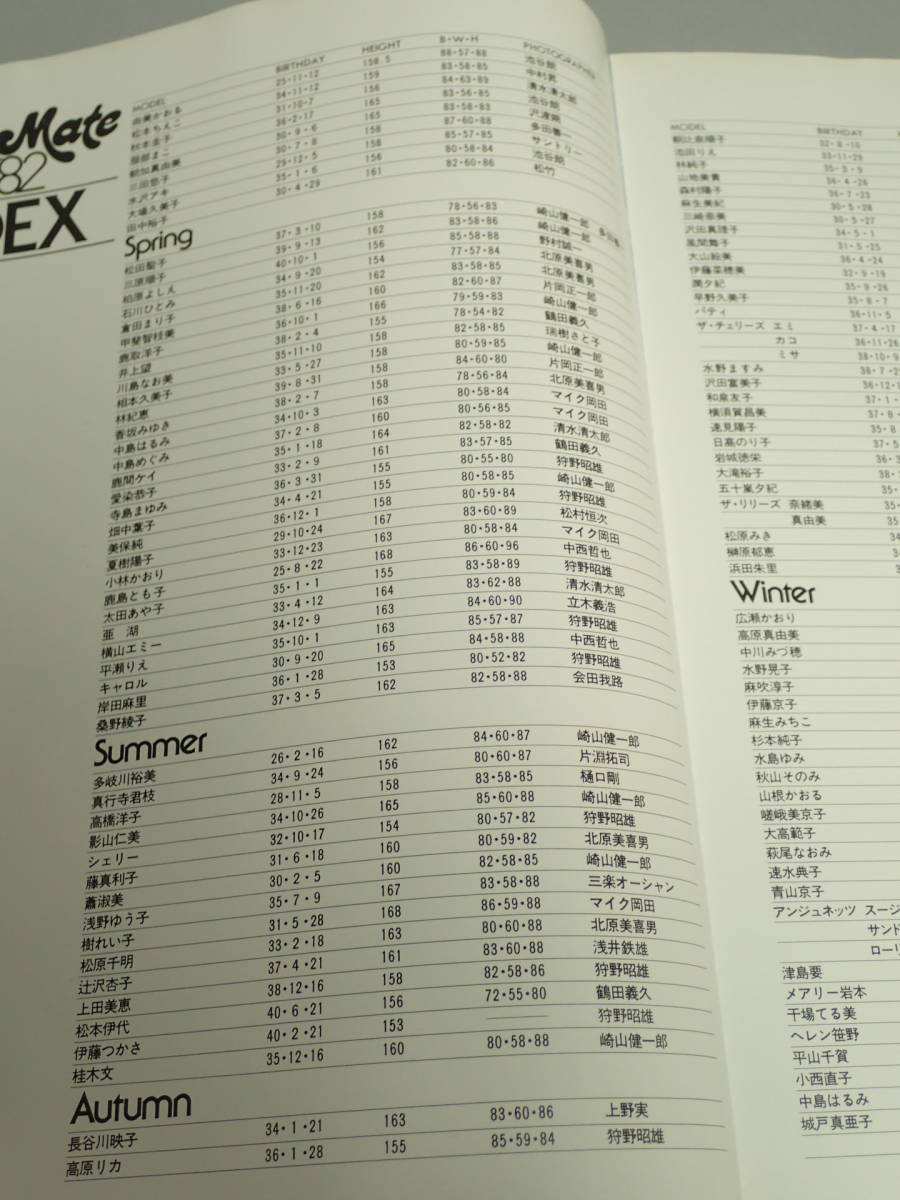 Mate
82
DEX
MODEL BIRTHDAY HEIGHT B・W・H PHOTOGRAPHER
由美かおる 25・11・12 158.5 88・57・88 池谷朗
松本ちえこ 34・11・12 159 83・58・85 中村昇
秋本圭子 31・10・7 156 84・63・89 清水清太郎
服部まこ 36・2・17 165 83・56・85 池谷朗
朝加真由美 30・9・6 83・58・83 沢渡朔
三田悠子 30・7・8 87・60・88 多田善一
水沢アキ 29・12・5 85・57・85 サントリー
大場久美子 35・1・6 156 80・58・84 池谷朗
田中裕子 30・4・29 161 82・60・86 松竹
Spring
松田聖子 37・3・10 158 78・56・83 崎山健一郎
三原順子 39・9・13 162 83・58・86 崎山健一郎
柏原よしえ 40・10・1 156 85・58・88 野村誠一
石川ひとみ 34・9・20 154 77・57・84 北原美喜男
倉田まり子 35・11・20 162 83・58・85 北原美喜男
甲斐智枝美 38・6・16 160 82・60・87 片岡正一郎
鹿取洋子 36・10・1 166 79・59・83 崎山健一郎
井上望 38・2・4 155 78・54・82 鶴田義久
川島なお美 35・11・10 158 82・58・85 瑞樹さと子
相本久美子 33・5・27 158 80・59・85 崎山健一郎
林紀恵 39・8・31 158 84・60・80 片岡正一郎
香坂みゆき 38・2・7 158 78・56・84 北原美喜男
中島はるみ 34・10・3 163 80・58・84 マイク岡田
中島めぐみ 37・2・8 160 80・56・85 マイク岡田
鹿間ケイ 35・1・18 164 82・58・82 清水清太郎
愛染恭子 33・2・9 161 83・57・85 鶴田義久
寺島まゆみ 36・3・31 155 80・55・80 狩野昭雄
畑中葉子 34・4・21 155 84・58・84 崎山健一郎
美保純 36・12・1 158 80・59・84 狩野昭雄
夏樹陽子 29・10・24 167 83・60・89 松村恒次
小林かおり 33・12・23 163 80・58・84 マイク岡田
鹿島とも子 25・8・22 168 86・60・96 中西哲也
太田あや子 35・1・1 155 83・58・89 狩野昭雄
亜 湖 33・4・12 164 83・62・88 清水清太郎
横山エミー 34・12・9 163 84・60・90 立木義浩
平瀬りえ 35・10・1 163 85・57・87 狩野昭雄
キャロル 30・9・20 165 84・58・88 中西哲也
岸田麻里 36・1・28 153 80・52・82 狩野昭雄
桑野綾子 37・3・5 162 82・58・88 会田我路
Summer
多岐川裕美 26・2・16 162 84・60・87 崎山健一郎
真行寺君枝 34・9・24 156 80・60・87 片淵拓司
高橋洋子 28・11・5 158 83・58・85 樋口剛
影山仁美 34・10・26 165 85・60・88 崎山健一郎
シェリー 32・10・17 154 80・57・82 狩野昭雄
藤真利子 31・6・18 160 80・59・82 北原美喜男
蕭淑美 30・2・5 160 82・58・85 崎山健一郎
浅野ゆう子 35・7・9 167 83・58・88 三楽オーシャン
樹れい子 31・5・28 168 86・59・88 マイク岡田
松原千明 33・2・18 163 80・60・88 北原美喜男
辻沢杏子 37・4・21 161 83・60・88 浅井鉄雄
上田美恵 38・12・16 158 82・58・86 狩野昭雄
松本伊代 40・6・21 156 72・55・80 鶴田義久
伊藤つかさ 40・2・21 153 狩野昭雄
桂木文 35・12・16 160 80・58・88 崎山健一郎
Autumn
長谷川映子 34・1・21 163 83・60・86 上野実
高原リカ 36・1・28 155 85・59・84 狩野昭雄
MODEL BIRTHDAY
朝比奈順子 32・8・10
池田りえ 33・11・29
林純子 35・3・9
山地美貴 36・4・26
森村陽子 36・7・23
麻生美紀 30・5・28
三崎奈美 30・5・27
沢田真理子 34・5・1
風間舞子 31・5・25
大山絵美 36・4・24
伊藤菜穂美 32・9・19
潤夕紀 35・9・28
早野久美子 35・8・7
パティ 36・11・5
ザ・チェリーズ エミ 37・4・17
カコ 36・11・26
ミサ 38・10・9
水野ますみ 38・7・2
沢田富美子 36・12・1
和泉友子 37・1・
横須賀昌美 37・8・
速見陽子 35・8
日髙のり子 37・5
岩城徳栄 36・3
大滝裕子 38・
五十嵐夕紀 35・
ザ・リリーズ 奈緒美 35・
真由美 35・
松原みき 34
榊原郁恵 34
浜田朱里 3
Winter
広瀬かおり
高原真由美
中川みづ穂
水野晃子
麻吹淳子
伊藤京子
麻生みちこ
杉本純子
水島ゆみ
秋山そのみ
山根かおる
嵯峨美京子
大高範子
萩尾なおみ
速水典子
青山京子
アンジュネッツ スージ
サンド
ローリ
津島要
メアリー岩本
干場てる美
ヘレン笹野
平山千賀
小西直子
中島はるみ
城戸真亜子